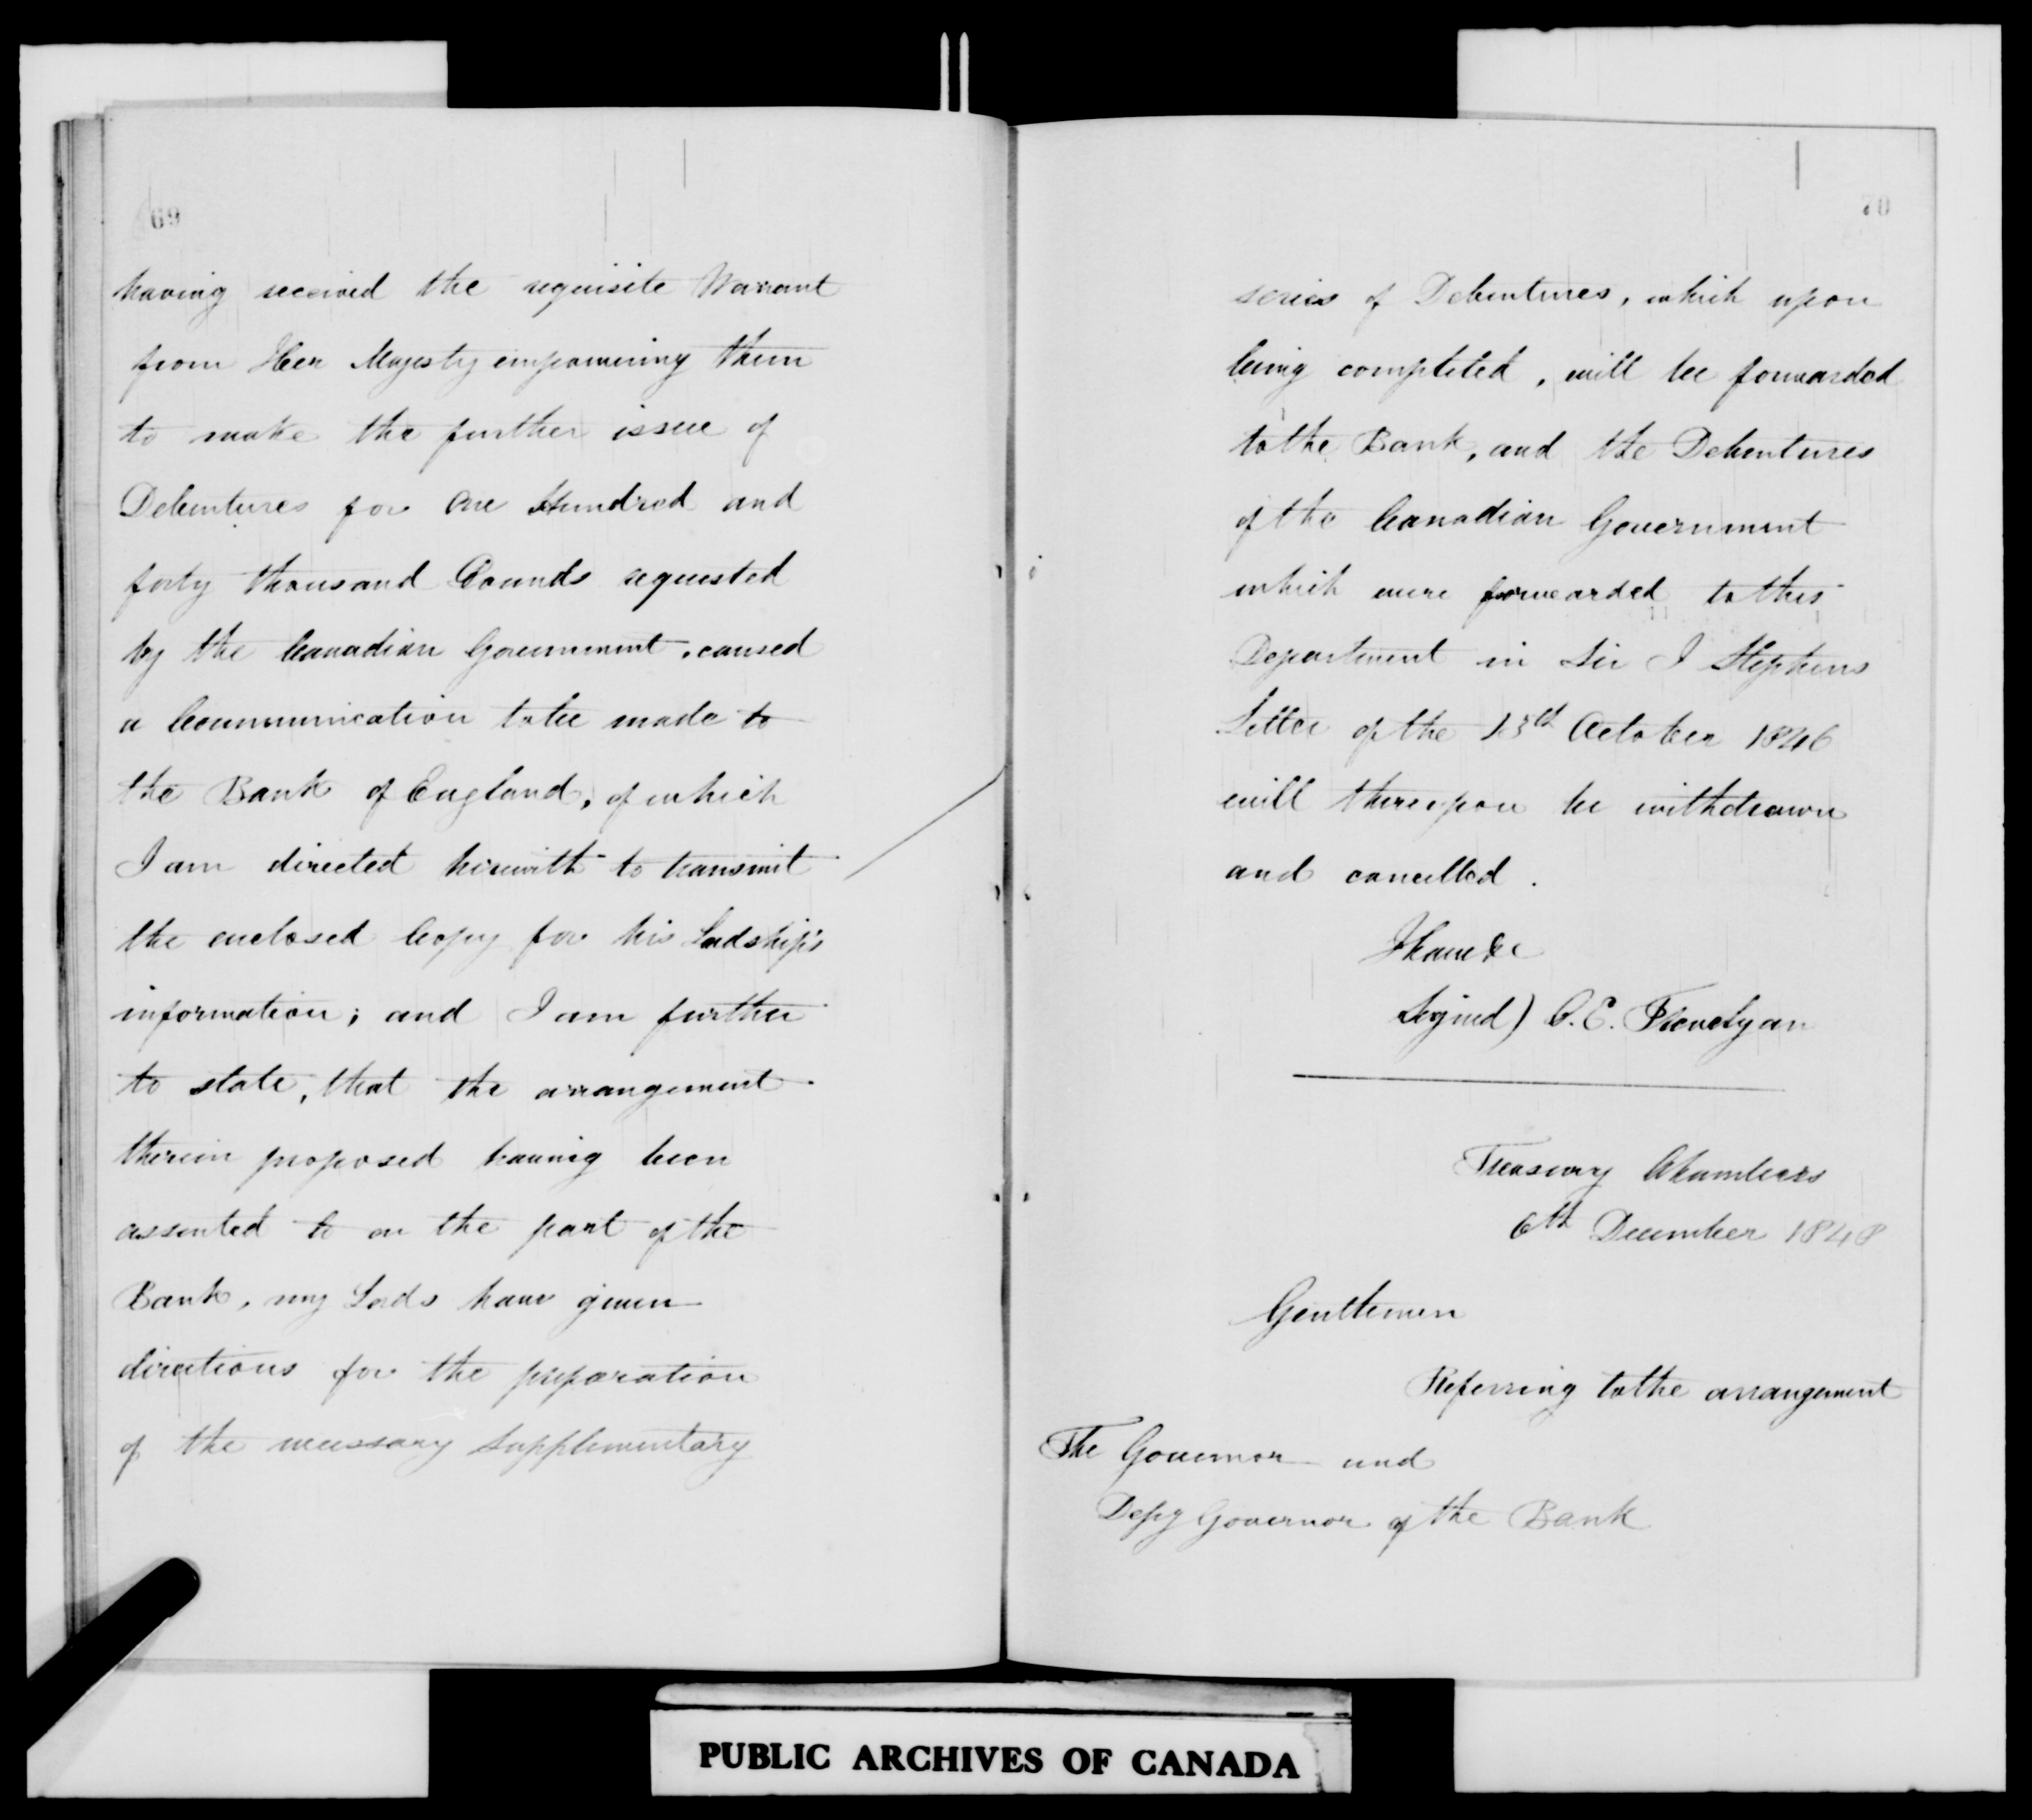 69
having received the requisite Warrant
from Her Majesty empowering them
to make the further issue of
Debentures for One Hundred and
forty thousand Pounds requested
by the Canadian Government, caused
a Communication to be made to
the Bank of England, of which
I am directed herewith to transmit
the enclosed Copy for his Lordship's
information; and I am further
to state, that the arrangement
therein proposed having been
assented to on the part of the
Bank, my Lords have given
directions for the preparation
of the necessary Supplementary
70
series of Debentures, which upon
being completed, will be forwarded
to the Bank, and the Debentures
of the Canadian Government
which were forwarded to this
Department in Sir J Stephens
Letter of the 13th October 1846
will thereupon be withdrawn
and cancelled.
I have &c
Signed) C. E. Trevelyan
Treasury Chambers
6th December 1848
Gentlemen
Referring to the arrangement
The Governor and
Depy Governor of the Bank
PUBLIC ARCHIVES OF CANADA